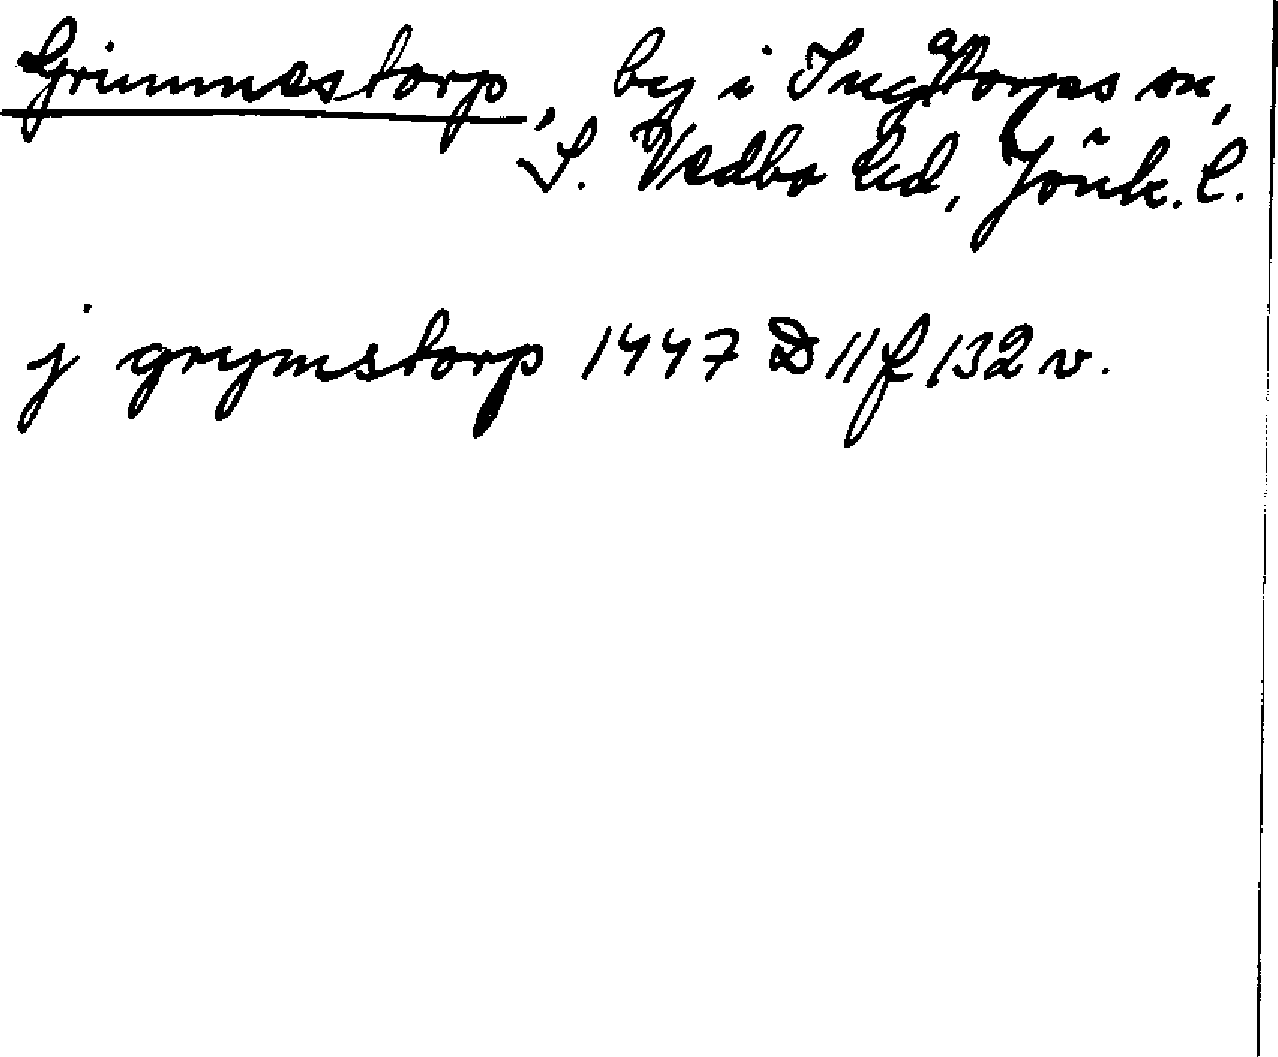 Grimmestorp, by i Ingatorps sn,
S. Vedbo hd, Jönk. l.
j grymstorp 1447 D 11 f 132 v.